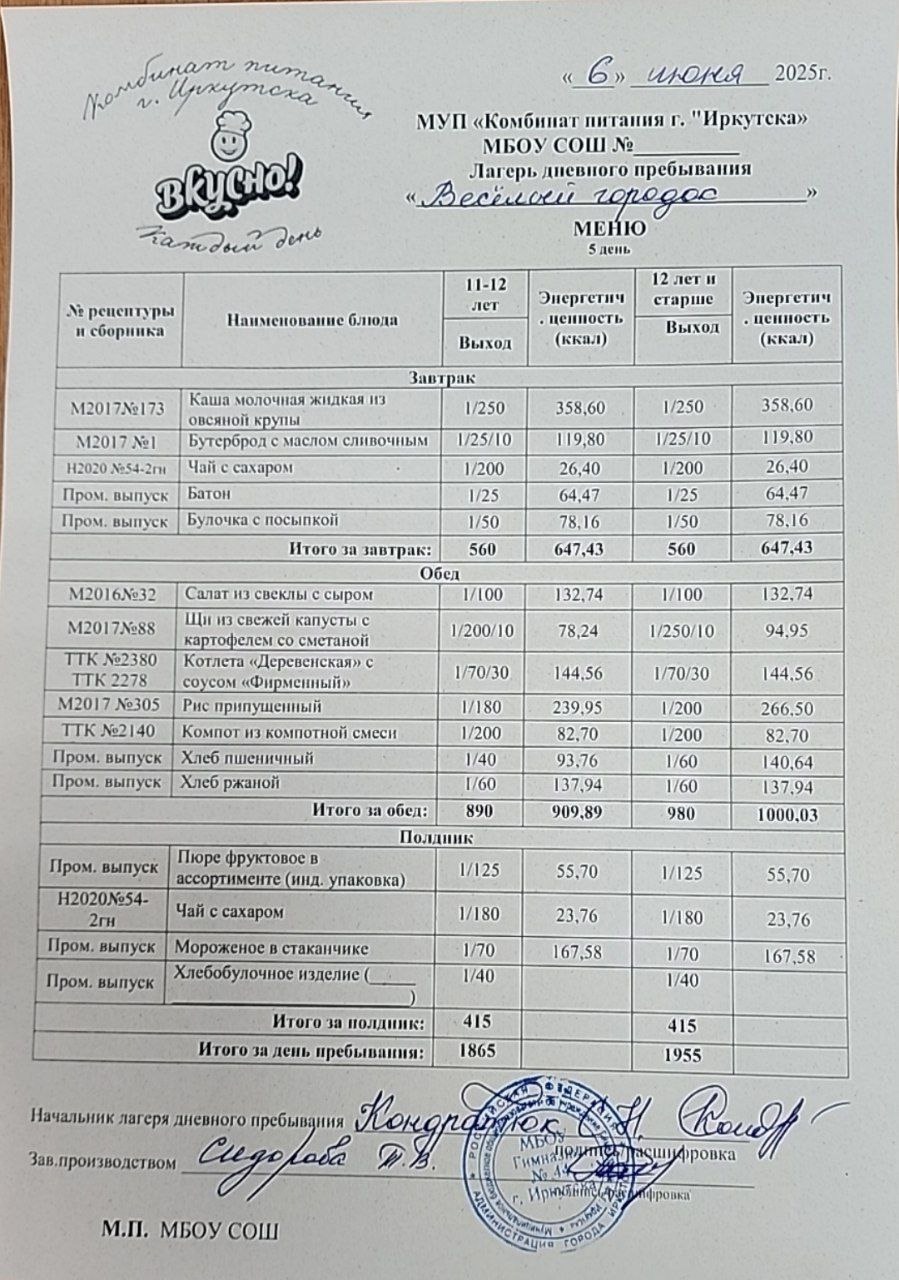 Комбинат питания
г. Иркутска
ВКУСНО!
Каждый день
« 6 » июня 2025г.
МУП «Комбинат питания г. "Иркутска»
МБОУ СОШ №__________
Лагерь дневного пребывания
« Весёлый городос »
МЕНЮ
5 день
№ рецептуры и сборника Наименование блюда 11-12 лет Выход Энергетич. ценность (ккал) 12 лет и старше Выход Энергетич. ценность (ккал)
Завтрак
М2017№173 Каша молочная жидкая из овсяной крупы 1/250 358,60 1/250 358,60
М2017 №1 Бутерброд с маслом сливочным 1/25/10 119,80 1/25/10 119,80
Н2020 №54-2гн Чай с сахаром 1/200 26,40 1/200 26,40
Пром. выпуск Батон 1/25 64,47 1/25 64,47
Пром. выпуск Булочка с посыпкой 1/50 78,16 1/50 78,16
Итого за завтрак: 560 647,43 560 647,43
Обед
М2016№32 Салат из свеклы с сыром 1/100 132,74 1/100 132,74
М2017№88 Щи из свежей капусты с картофелем со сметаной 1/200/10 78,24 1/250/10 94,95
ТТК №2380 ТТК 2278 Котлета «Деревенская» с соусом «Фирменный» 1/70/30 144,56 1/70/30 144,56
М2017 №305 Рис припущенный 1/180 239,95 1/200 266,50
ТТК №2140 Компот из компотной смеси 1/200 82,70 1/200 82,70
Пром. выпуск Хлеб пшеничный 1/40 93,76 1/60 140,64
Пром. выпуск Хлеб ржаной 1/60 137,94 1/60 137,94
Итого за обед: 890 909,89 980 1000,03
Полдник
Пром. выпуск Пюре фруктовое в ассортименте (инд. упаковка) 1/125 55,70 1/125 55,70
Н2020№54-2гн Чай с сахаром 1/180 23,76 1/180 23,76
Пром. выпуск Мороженое в стаканчике 1/70 167,58 1/70 167,58
Пром. выпуск Хлебобулочное изделие (_____ __________________________) 1/40 1/40
Итого за полдник: 415 415
Итого за день пребывания: 1865 1955
Начальник лагеря дневного пребывания Кондратюк С.Н.
подпись/расшифровка
Зав.производством Сидорова Т.В.
подпись/расшифровка
РОССИЙСКАЯ ФЕДЕРАЦИЯ
АДМИНИСТРАЦИЯ ГОРОДА ИРКУТСКА
МБОУ
Гимназия
№ 44
г. Иркутска
М.П. МБОУ СОШ